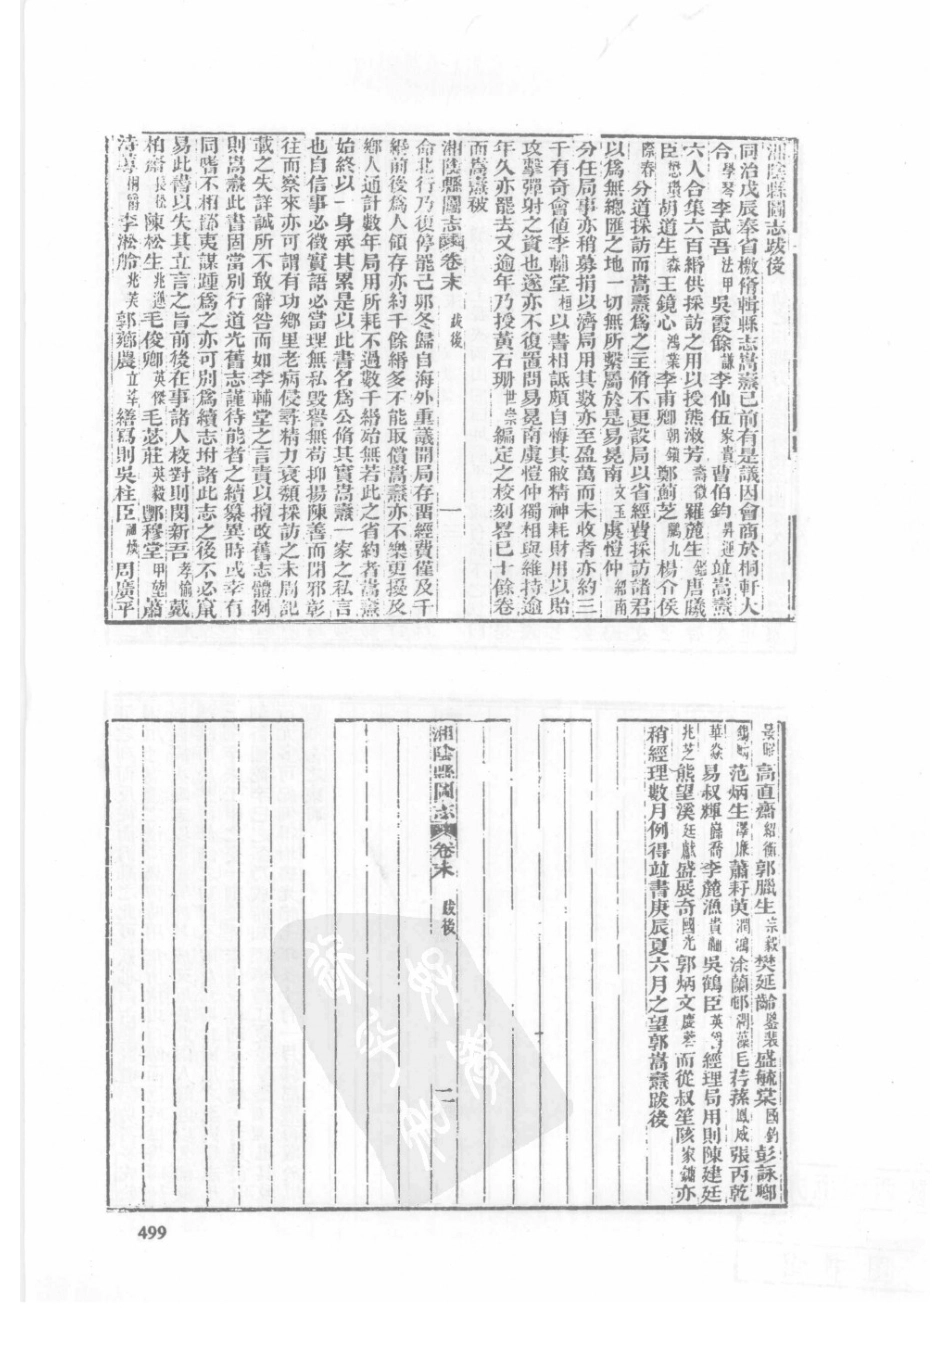 湘陰縣圖志跋後
同治戊辰奉省檄脩輯縣志嵩燾已前有是議因會商於桐軒大
令學琴李試吾法甲吳霞餘謙李仙伍家貴曹伯鈞昇運竝嵩燾
六人合集六百緡供採訪之用以授熊漱芳壽徵羅麓生鎔唐曦
臣懋璠胡道生森王鏡心鴻業李甫卿朝翎鄭薊芝驥九楊介侯
際春分道採訪而嵩燾爲之主脩不更設局以省經費採訪諸君
以爲無總匯之地一切無所繫屬於是易晃南文玉虞愷仲紹南
分任局事亦稍募捐以濟局用其數亦至盈萬而未收者亦約三
千有奇會値李輔堂桓以書相詆頗自悔其敝精神耗財用以貽
攻擊彈射之資也遂亦不復置問易晃南虞愷仲獨相與維持逾
年久亦罷去又逾年乃授黃石珊世崇編定之校刻畧已十餘卷
而嵩燾被
湘陰縣圖志 卷末 跋後 一
命北行乃復停罷己卯冬歸自海外重議開局存留經費僅及千
緡前後爲人領存亦約千餘緡多不能取償嵩燾亦不樂更擾及
鄉人通計數年局用所耗不過數千緡殆無若此之省約者嵩燾
始終以一身承其累是以此書名爲公脩其實嵩燾一家之私言
也自信事必徵實語必當理無私毀譽無苟抑揚陳善而閉邪彰
往而察來亦可謂有功鄉里老病侵尋精力衰頹採訪之未周記
載之失詳誠所不敢辭咎而如李輔堂之言責以擅改舊志體例
則嵩燾此書固當別行道光舊志謹待能者之續纂異時或幸有
同嗜不相鄙夷謀踵爲之亦可別爲續志坿諸此志之後不必竄
易此書以失其立言之旨前後在事諸人校對則閔新吾孝愉戴
柏齋長松陳松生兆遜毛俊卿英傑毛苾莊英毅鄷穆堂甲莛蕭
李淞舲兆芙郭薌農立莘繕寫則吳柱臣繡煥周廣平
高直齋紹衡郭臘生宗毅樊延齡鑒裴盛毓棠國鈞彭詠鄉
范炳生澤廉蕭耔英潤鴻涂蘭邨潤藻毛荇蓀鳳威張丙乾
華焱易叔輝錦喬李麓漁貴翻吳鶴臣英 經理局用則陳建廷
兆芝熊望溪廷獻盛展奇國光郭炳文慶藜而從叔笙陔家鏞亦
稍經理數月例得竝書庚辰夏六月之望郭嵩燾跋後
湘陰縣圖志 卷末 跋後 二
499